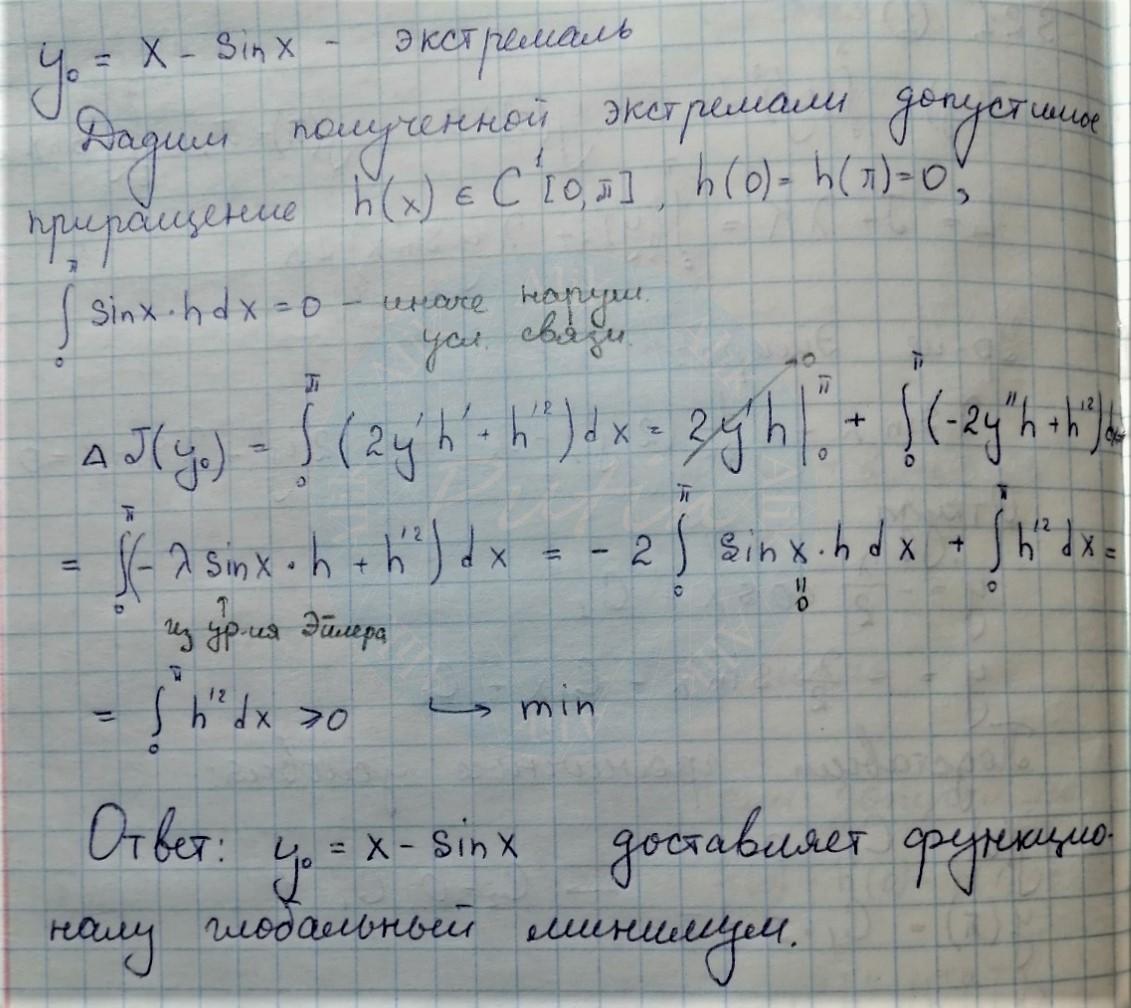 y₀ = x - sin x - экстремаль
Дадим полученной экстремали допустимое
приращение h(x) ∈ C¹[0,π], h(0)= h(π)=0,
∫₀^π sin x · h dx = 0 - иначе наруш.
усл. связи.
ΔJ(y₀) = ∫₀^π (2y'h' + h'²)dx = 2y'h|₀^π →0 + ∫₀^π (-2y''h + h'²)dx
= ∫₀^π (-λ sin x · h + h'²) dx = -2 ∫₀^π sin x · h dx + ∫₀^π h'² dx =
↑ из ур-ия Эйлера
॥ 0
= ∫₀^π h'² dx ⩾ 0 ↪ min
Ответ: y₀ = x - sin x доставляет функцио-
налу глобальный минимум.